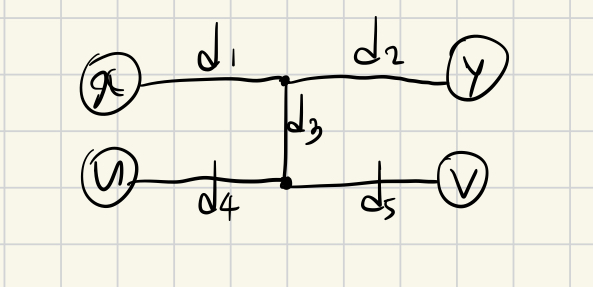 x d1 d2 y
d3
u d4 d5 v